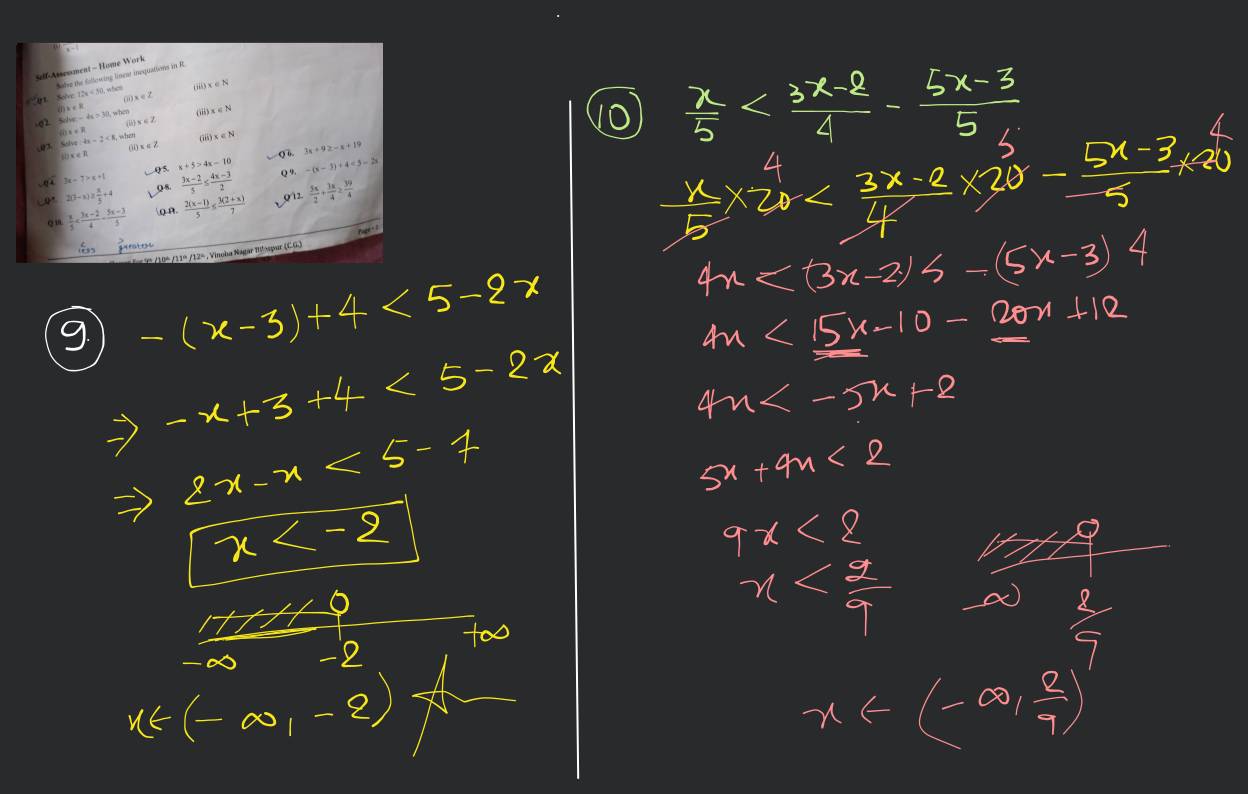 x-1
Self-Assessment – Home Work
Solve the following linear inequations in R.
Q1. Solve: 12x < 50, when
(i) x ∈ R (ii) x ∈ Z (iii) x ∈ N
Q2. Solve: – 4x > 30, when
(i) x ∈ R (ii) x ∈ Z (iii) x ∈ N
Q3. Solve : 4x – 2 < 8, when
(i) x ∈ R (ii) x ∈ Z (iii) x ∈ N
Q4. 3x – 7 > x + 1 Q5. x + 5 > 4x – 10 Q6. 3x + 9 ≥ – x + 19
2(3–x) ≥ x/5 + 4 Q8. 3x–2/5 ≤ 4x–3/2 Q9. –(x – 3) + 4 < 5 – 2x
Q10. x/5 < 3x–2/4 – 5x–3/5 2(x–1)/5 ≤ 3(2+x)/7 Q12. 5x/2 + 3x/4 ≥ 39/4
less greater
Page -
For 9th /10th /11th /12th , Vinoba Nagar Bilaspur (C.G.)
9. -(x-3)+4 < 5-2x
⇒ -x+3+4 < 5-2x
⇒ 2x-x < 5-7
x < -2
0
-∞ -2 +∞
x∈(-∞, -2)
10 x/5 < 3x-2/4 - 5x-3/5
4 5 4
x/5 ×20 < 3x-2/4 ×20 - 5x-3/5 ×20
4x < (3x-2)5 - (5x-3) 4
4x < 15x-10 - 20x +12
4x < -5x+2
5x+4x < 2
9x < 2
x < 2/9
-∞ 2/9
x ∈ (-∞, 2/9)